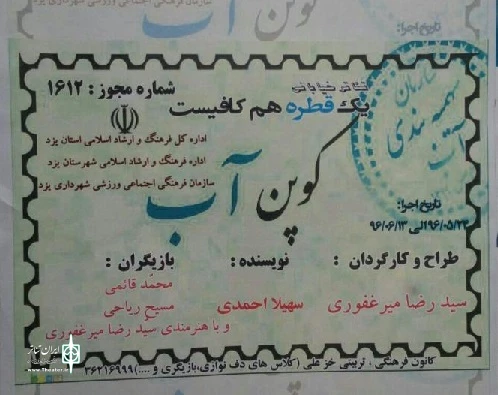 سازمان فرهنگی اجتماعی ورزشی شهرداری یزد
آب
تاریخ اجرا:
تئاتر خیابانی
شماره مجوز : ۱۶۱۲
یک قطره هم کافیست
سازمان
سهمیه بندی
آب
اداره کل فرهنگ و ارشاد اسلامی استان یزد
اداره فرهنگ و ارشاد اسلامی شهرستان یزد
سازمان فرهنگی اجتماعی ورزشی شهرداری یزد
کوپن آب
تاریخ اجرا:
۹۶/۰۵/۲۳ الی ۹۶/۰۶/۱۳
طراح و کارگردان :
نویسنده :
بازیگران :
سید رضا میرغفوری
سهیلا احمدی
محمد قائمی
مسیح ریاحی
و با هنرمندی سید رضا میرغفوری
کانون فرهنگی ، تربیتی خزعلی (کلاس های دف نوازی،بازیگری و ....) ۳۶۲۱۶۹۹۹
ایران تئاتر
www.Theater.ir